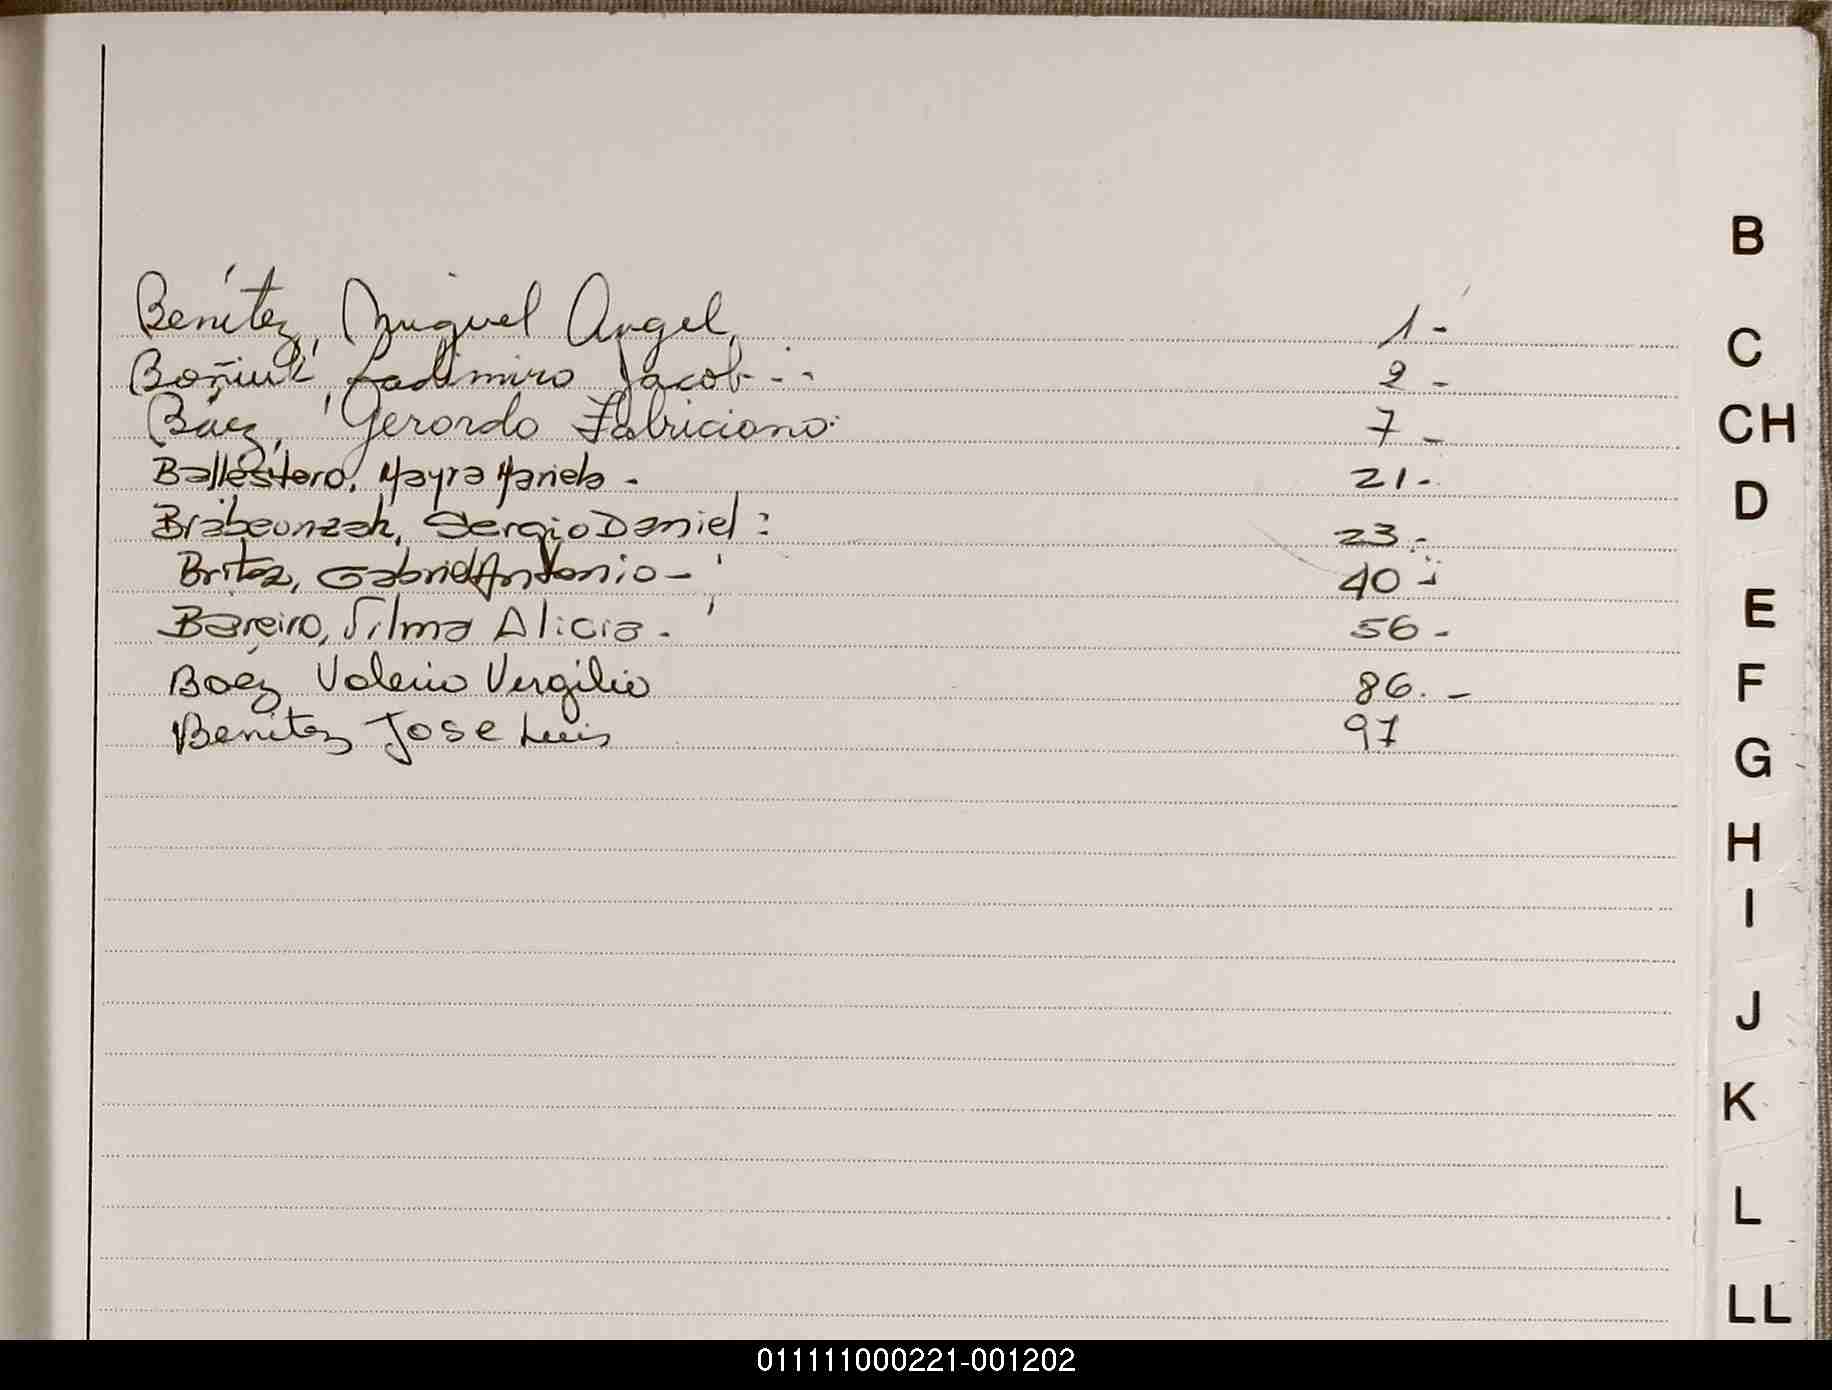 B
Benítez, Miguel Angel, 1-
C
Boñiuk, Ladimiro Jacob - . - 2 -
CH
Báez, Gerardo Fabriciano. 7 -
Ballestero, Mayra Mariela - 21 -
D
Sergio Daniel : 23 -
Britez, Gabriel Antonio - 40 -
E
Bareiro, Silma Alicia - 56 -
F
Baéz Valerio Vergilio 86. -
Benitez Jose Luis 97
G
H
I
J
K
L
LL
011111000221-001202